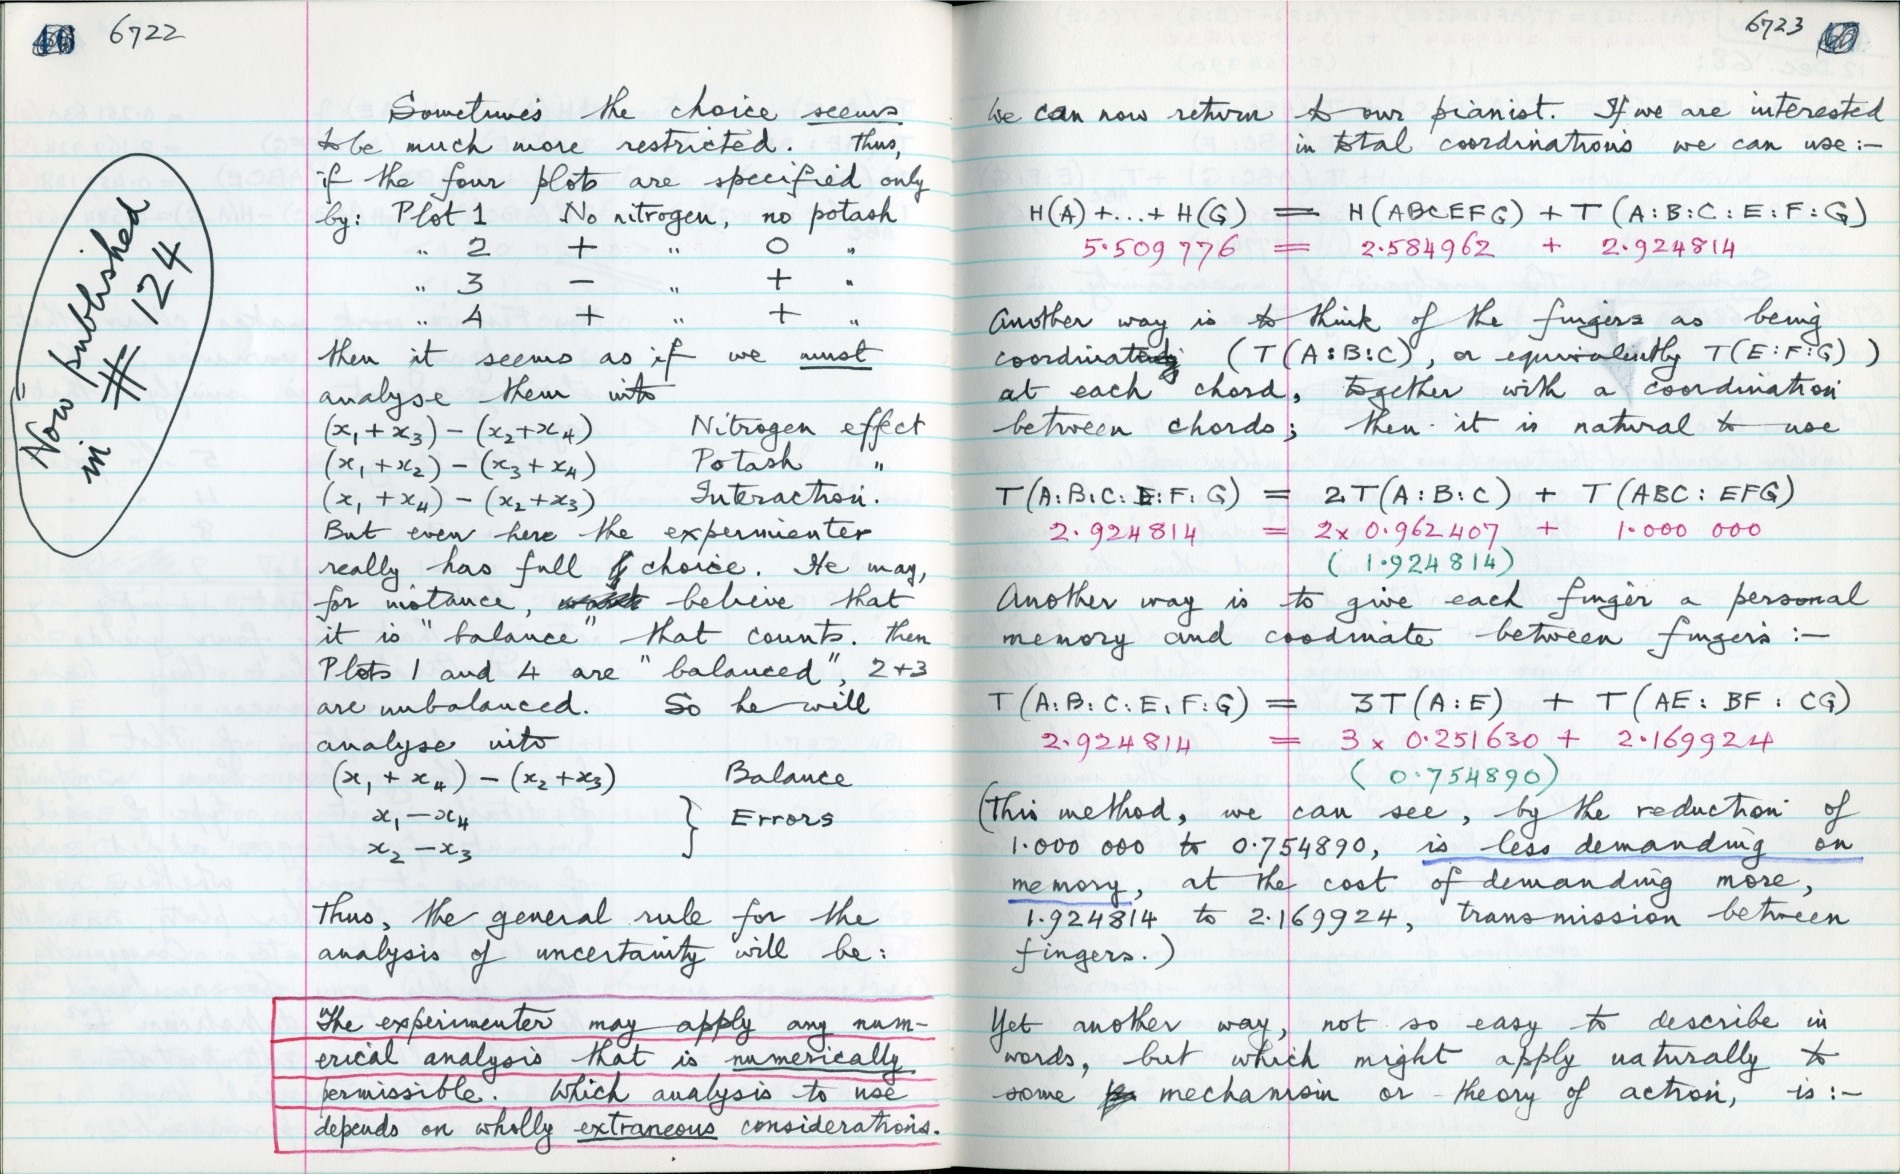 6722
Now published
in # 124
Sometimes the choice seems
to be much more restricted. Thus,
if the four plots are specified only
by: Plot 1 No nitrogen, no potash
" 2 + " 0 "
" 3 − " + "
" 4 + " + "
then it seems as if we must
analyse them into
(x₁ + x₃) − (x₂ + x₄) Nitrogen effect
(x₁ + x₂) − (x₃ + x₄) Potash "
(x₁ + x₄) − (x₂ + x₃) Interaction.
But even here the experimenter
really has full choice. He may,
for instance, believe that
it is "balance" that counts. Then
Plots 1 and 4 are "balanced", 2+3
are unbalanced. So he will
analyse into
(x₁ + x₄) − (x₂ + x₃) Balance
x₁ − x₄
x₂ − x₃ } Errors
Thus, the general rule for the
analysis of uncertainty will be:
The experimenter may apply any num-
erical analysis that is numerically
permissible. Which analysis to use
depends on wholly extraneous considerations.
6723
We can now return to our pianist. If we are interested
in total coordinations we can use :−
H(A) + ... + H(G) = H(ABCEFG) + T(A:B:C:E:F:G)
5.509776 = 2.584962 + 2.924814
Another way is to think of the fingers as being
coordinated (T(A:B:C), or equivalently T(E:F:G))
at each chord, together with a coordination
between chords; then it is natural to use
T(A:B:C:E:F:G) = 2T(A:B:C) + T(ABC:EFG)
2.924814 = 2x 0.962407 + 1.000 000
(1.924814)
Another way is to give each finger a personal
memory and coordinate between fingers :−
T(A:B:C:E:F:G) = 3T(A:E) + T(AE:BF:CG)
2.924814 = 3 x 0.251630 + 2.169924
(0.754890)
(This method, we can see, by the reduction of
1.000 000 to 0.754890, is less demanding on
memory, at the cost of demanding more,
1.924814 to 2.169924, transmission between
fingers.)
Yet another way, not so easy to describe in
words, but which might apply naturally to
some mechanism or theory of action, is :−